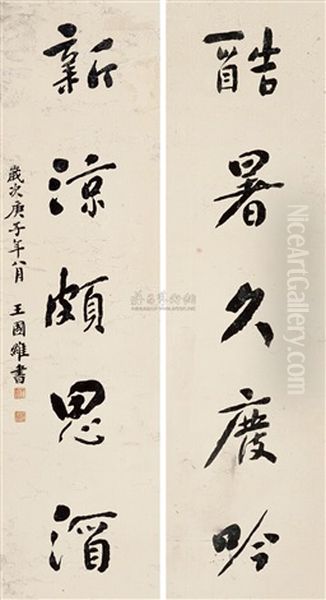 酷暑久廢吟
新涼頗思酒
歲次庚子年八月 王國維書